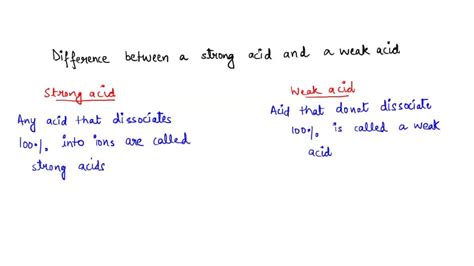 Difference between a strong acid and a weak acid
Strong acid
Any acid that dissociates
100% into ions are called
strong acids
Weak acid
Acid that donot dissociate
100% is called a weak
acid